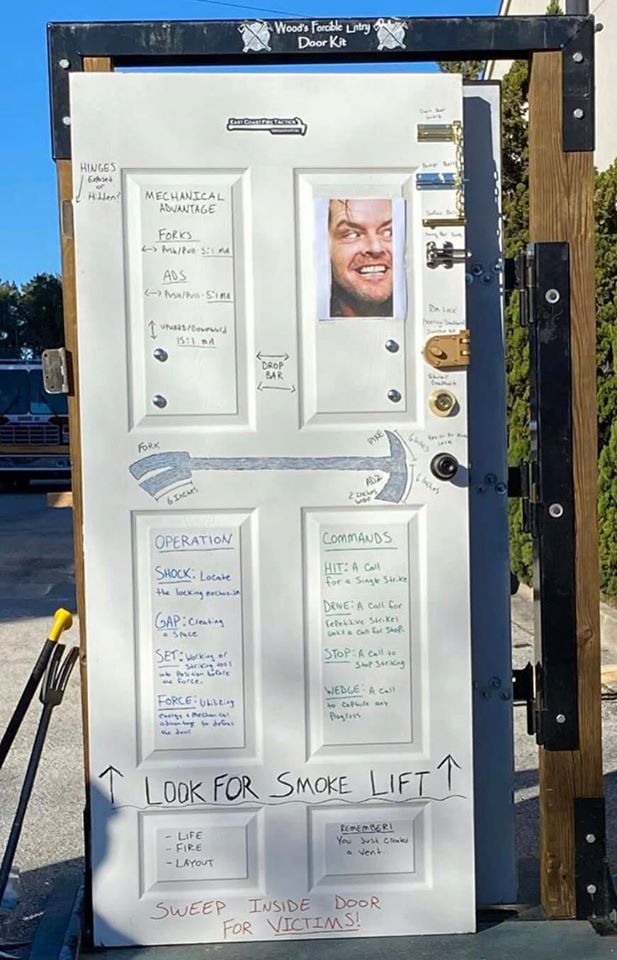 Wood's Forcible Entry
Door Kit
EAST COAST FIRE TACTICS
HINGES
Exposed
or
Hidden?
MECHANICAL
ADVANTAGE
FORKS
↔ Push/Pull 5:1 MA
ADS
↔ Push/Pull 5:1 MA
↕ UPWARD/DOWNWARD
15:1 MA
DROP
BAR
Rim Lock
Tubular
Deadbolt
FORK
6 INCHES
PIKE
6 inches
ADZ
2 INCHES
WIDE
6 inches
OPERATION
SHOCK: Locate
the locking mechanism
GAP: Creating
a space
SET: Working or
Striking tool
into Position before
the force.
FORCE: Utilizing
energy & Mechanical
advantage to defeat
the door
COMMANDS
HIT: A Call
for a Single Strike
DRIVE: A Call for
repetitive Strikes
until a call for Stop.
STOP: A Call to
Stop Striking
WEDGE: A Call
to Capture any
Progress
↑ LOOK FOR SMOKE LIFT ↑
- LIFE
- FIRE
- LAYOUT
REMEMBER!
You Just Created
a Vent.
SWEEP INSIDE DOOR
FOR VICTIMS!